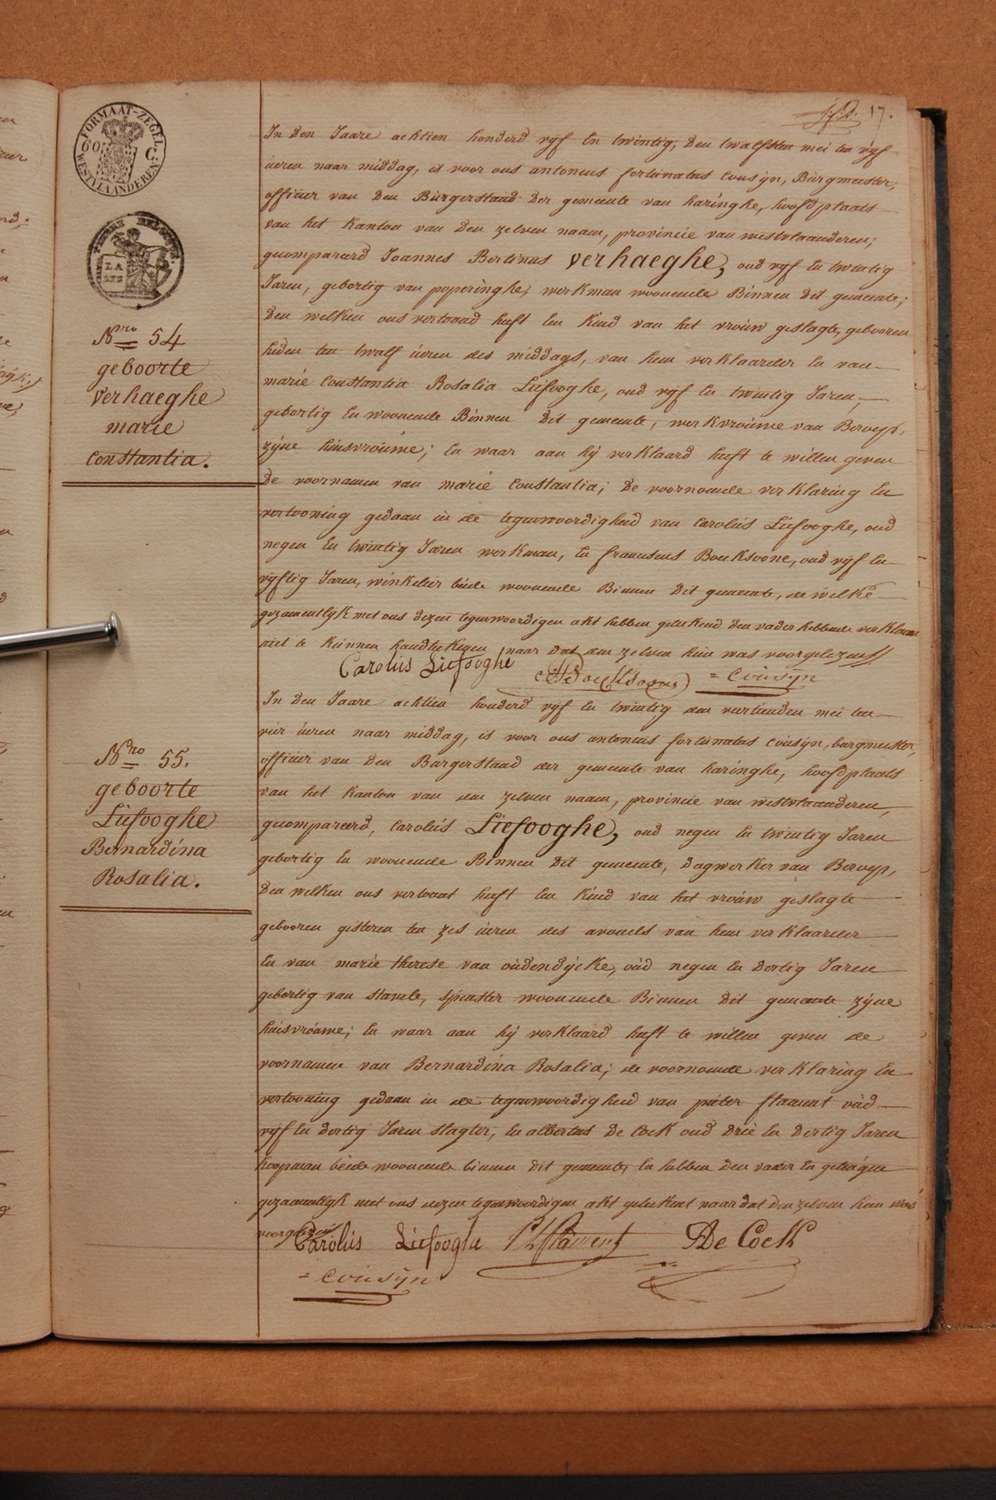 17.
FORMAAT-ZEGEL
60 C.
WESTVLAANDEREN
Nro 54
geboorte
verhaeghe
marie
Constantia.
In den Jaare achtien honderd vyf En twintig, den twalfsten mei ten vyf
ùeren naar middag, is voor ons antonius fortùnatus Coùsyn, Bùrgmeester,
officier van den Bùrgerstand der gemeente van haringhe, hoofdplaats
van het Kanton van den zelven naam, provincie van westvlaanderen;
gecomparerd Joannes Bertinus verhaeghe, oud vyf En twintig
Jaren, gebortig van poperinghe, werkman woonende Binnen dit gemeente;
den welken ons vertoond heeft Een Kind van het vroùw geslagte, gebooren
heden ten twalf ùeren des middags, van hem verklaarder En van
marie Constantia Rosalia Liefooghe, oud vyf En twintig Jaren,
gebortig En woonende Binnen dit gemeente, werkvroùwe van Beroep,
zyne hùisvroùwe; En waar aan hy verklaard heeft te willen geven
de voornamen van marie Constantia; de voornoemde verklaring En
vertooning gedaan in de tegenwoordigheid van Carolùs Liefooghe, oud
negen En twintig Jaren werkman, En franciscus Boucksoone, oud vyf En
vyftig Jaren, winkelier beide woonende Binnen dit gemeente, de welke
gezaamentlyk met ons dezen tegenwoordigen akt hebben geteekend den vader hebbende verklaard
niet te Kùnnen handteekenen naar dat den zelven hùn was voorgelezen
Carolùs Liefooghe Boucksoone = Coùsyn
Nro 55.
geboorte
Liefooghe
Bernardina
Rosalia.
In den Jaare achtien honderd vyf En twintig den veertienden mei ten
vier ùeren naar middag, is voor ons antonius fortùnatus Coùsyn, bùrgmeester,
officier van den Bùrgerstand der gemeente van haringhe, hoofdplaats
van het Kanton van den zelven naam, provincie van westvlaanderen,
gecompareerd, Carolùs Liefooghe, oud negen En twintig Jaren
gebortig En woonende Binnen dit gemeente, dagwerker van Beroep,
den welken ons vertoont heeft Een Kind van het vroùw geslagte
gebooren gisteren ten zes ùeren des avonds van hem verklaarder
En van marie therese van oùdendycke, oùd negen En dertig Jaren
gebortig van stavele, spinster woonende Binnen dit gemeente zyne
hùisvroùwe; En waar aan hy verklaard heeft te willen geven de
voornamen van Bernardina Rosalia; de voornoemde verklaring En
vertooning gedaan in de tegenwoordigheid van pieter flament oùd
vyf En dertig Jaren slagter, En albertus De Cock oud drie En dertig Jaren
Koopman beide woonende binnen dit gemeente, En hebben den vader En getùigen
gezaamentlyk met ons dezen tegenwoordigen akt geteekent naar dat den zelven hùn was
voorgelezen
Carolùs Liefooghe Flament De Cock
= Coùsyn